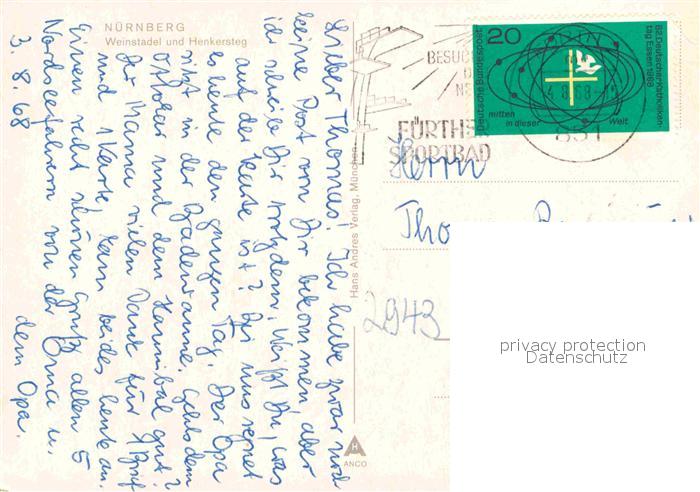 NÜRNBERG
Weinstadel und Henkersteg
Lieber Thomas! Ich habe zwar noch
keine Post von Dir bekommen, aber
ich schreibe Dir trotzdem. Weißt Du, was
auf der Karte ist? Bei uns regnet
es heute den ganzen Tag. Der Opa
sitzt in der Badewanne. Gehts dem
Ottokar und dem Hannibal gut?
Der Mama vielen Dank für 1 Brief
und 1 Karte, kam beides heute an.
Einen recht schönen Gruß allen 5
Nordseefahrern von der Oma u.
dem Opa.
3. 8. 68
Hans Andres Verlag, München
ANCO
BESUCHT
FÜRTHER
SPORTBAD
4.8.68
851
20
Deutsche Bundespost
82. Deutscher Katholiken-
tag Essen 1968
mitten
in dieser
Welt
Herrn
2943
privacy protection
Datenschutz